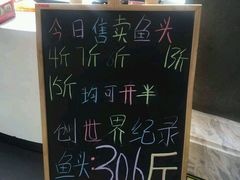 今日售卖鱼头
4斤7斤 斤 13斤
15斤 均可开半
创世界纪录
鱼头:306斤